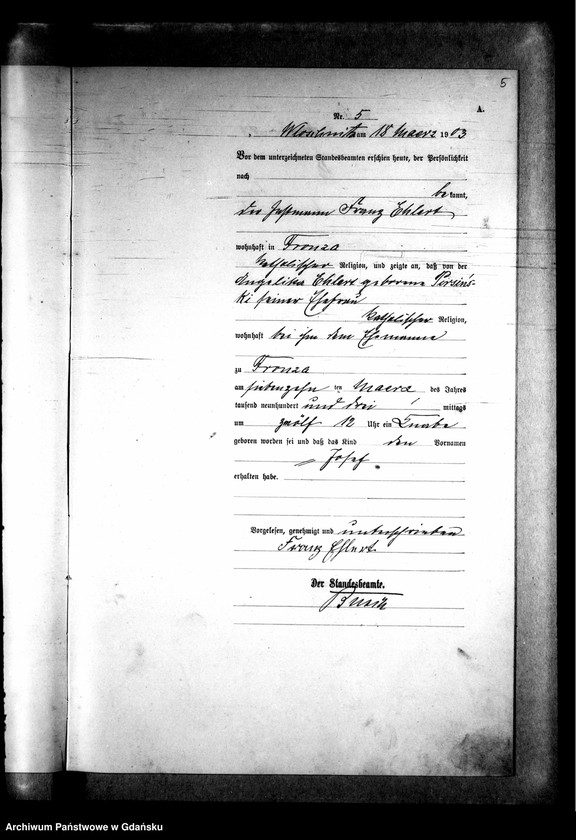 5
A.
Nr. 5
am 18 Maerz 1903
Vor dem unterzeichneten Standesbeamten erschien heute, der Persönlichkeit
nach
bekannt,
der Franz Ehlert
wohnhaft in Fronza
katholischer Religion, und zeigte an, daß von der
Angelika Ehlert geborene Persins-
ki seiner Ehefrau
katholischer Religion,
wohnhaft bei ihm dem Ehemanne
zu Fronza
am siebenzehn ten Maerz des Jahres
tausend neunhundert und drei mittags
um zwölf 12 Uhr ein Knabe
geboren worden sei und daß das Kind den Vornamen
Josef
erhalten habe.
Vorgelesen, genehmigt und unterschrieben
Franz Ehlert
Der Standesbeamte.
Archiwum Państwowe w Gdańsku